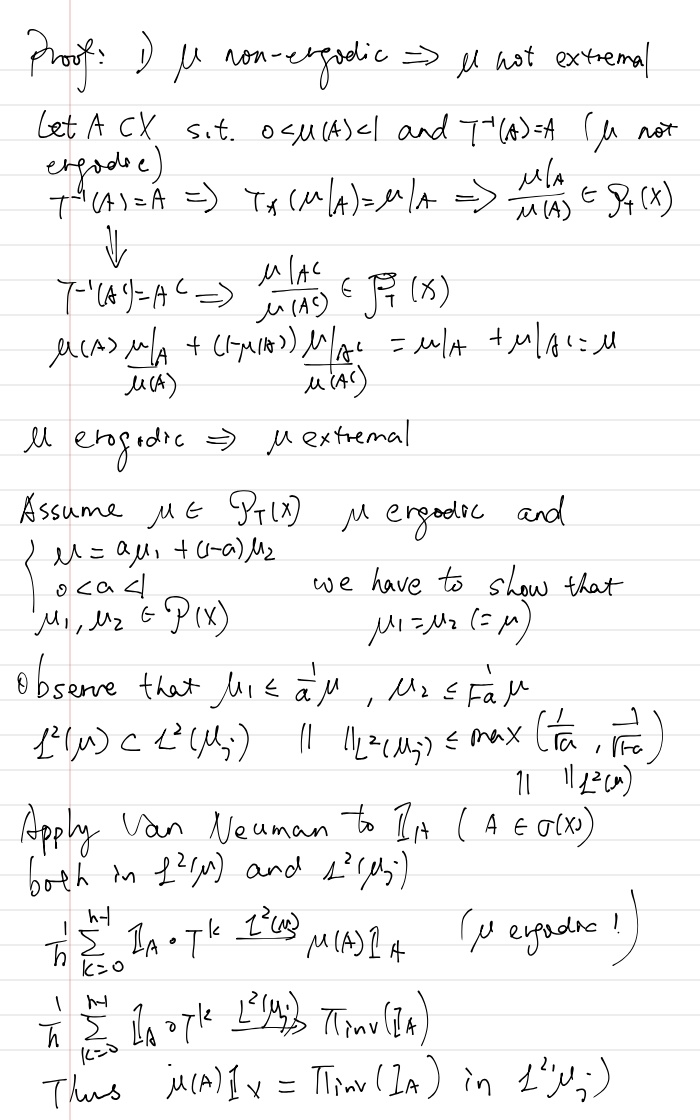 Proof: 1) μ non-ergodic ⇒ μ not extremal
Let A ⊂ X s.t. 0<μ(A)<1 and T⁻¹(A)=A (μ not
ergodic)
T⁻¹(A)=A ⇒ T_*(μ|A)=μ|A ⇒ μ|A / μ(A) ∈ P_T(X)
⇓
T⁻¹(Aᶜ)=Aᶜ ⇒ μ|Aᶜ / μ(Aᶜ) ∈ P_T(X)
μ(A) μ|A / μ(A) + (1-μ(A)) μ|Aᶜ / μ(Aᶜ) = μ|A + μ|Aᶜ = μ
μ erogodic ⇒ μ extremal
Assume μ ∈ P_T(X) μ ergodic and
{ μ = aμ₁ + (1-a)μ₂
0<a<1 we have to show that
μ₁, μ₂ ∈ P(X) μ₁=μ₂ (=μ)
Observe that μ₁ ≤ 1/a μ, μ₂ ≤ 1/(1-a) μ
L²(μ) ⊂ L²(μ_j) ‖ ‖_L²(μ_j) ≤ max (1/√a, 1/√(1-a))
‖ ‖_L²(μ)
Apply Van Neuman to 𝟙_A (A ∈ σ(X))
both in L²(μ) and L²(μ_j)
1/n Σ_{k=0}^{n-1} 𝟙_A ∘ T^k —L²(μ)→ μ(A)𝟙_A (μ ergodic!)
1/n Σ_{k=0}^{n-1} 𝟙_A ∘ T^k —L²(μ_j)→ Π_inv(𝟙_A)
Thus μ(A)𝟙_X = Π_inv(𝟙_A) in L²(μ_j)